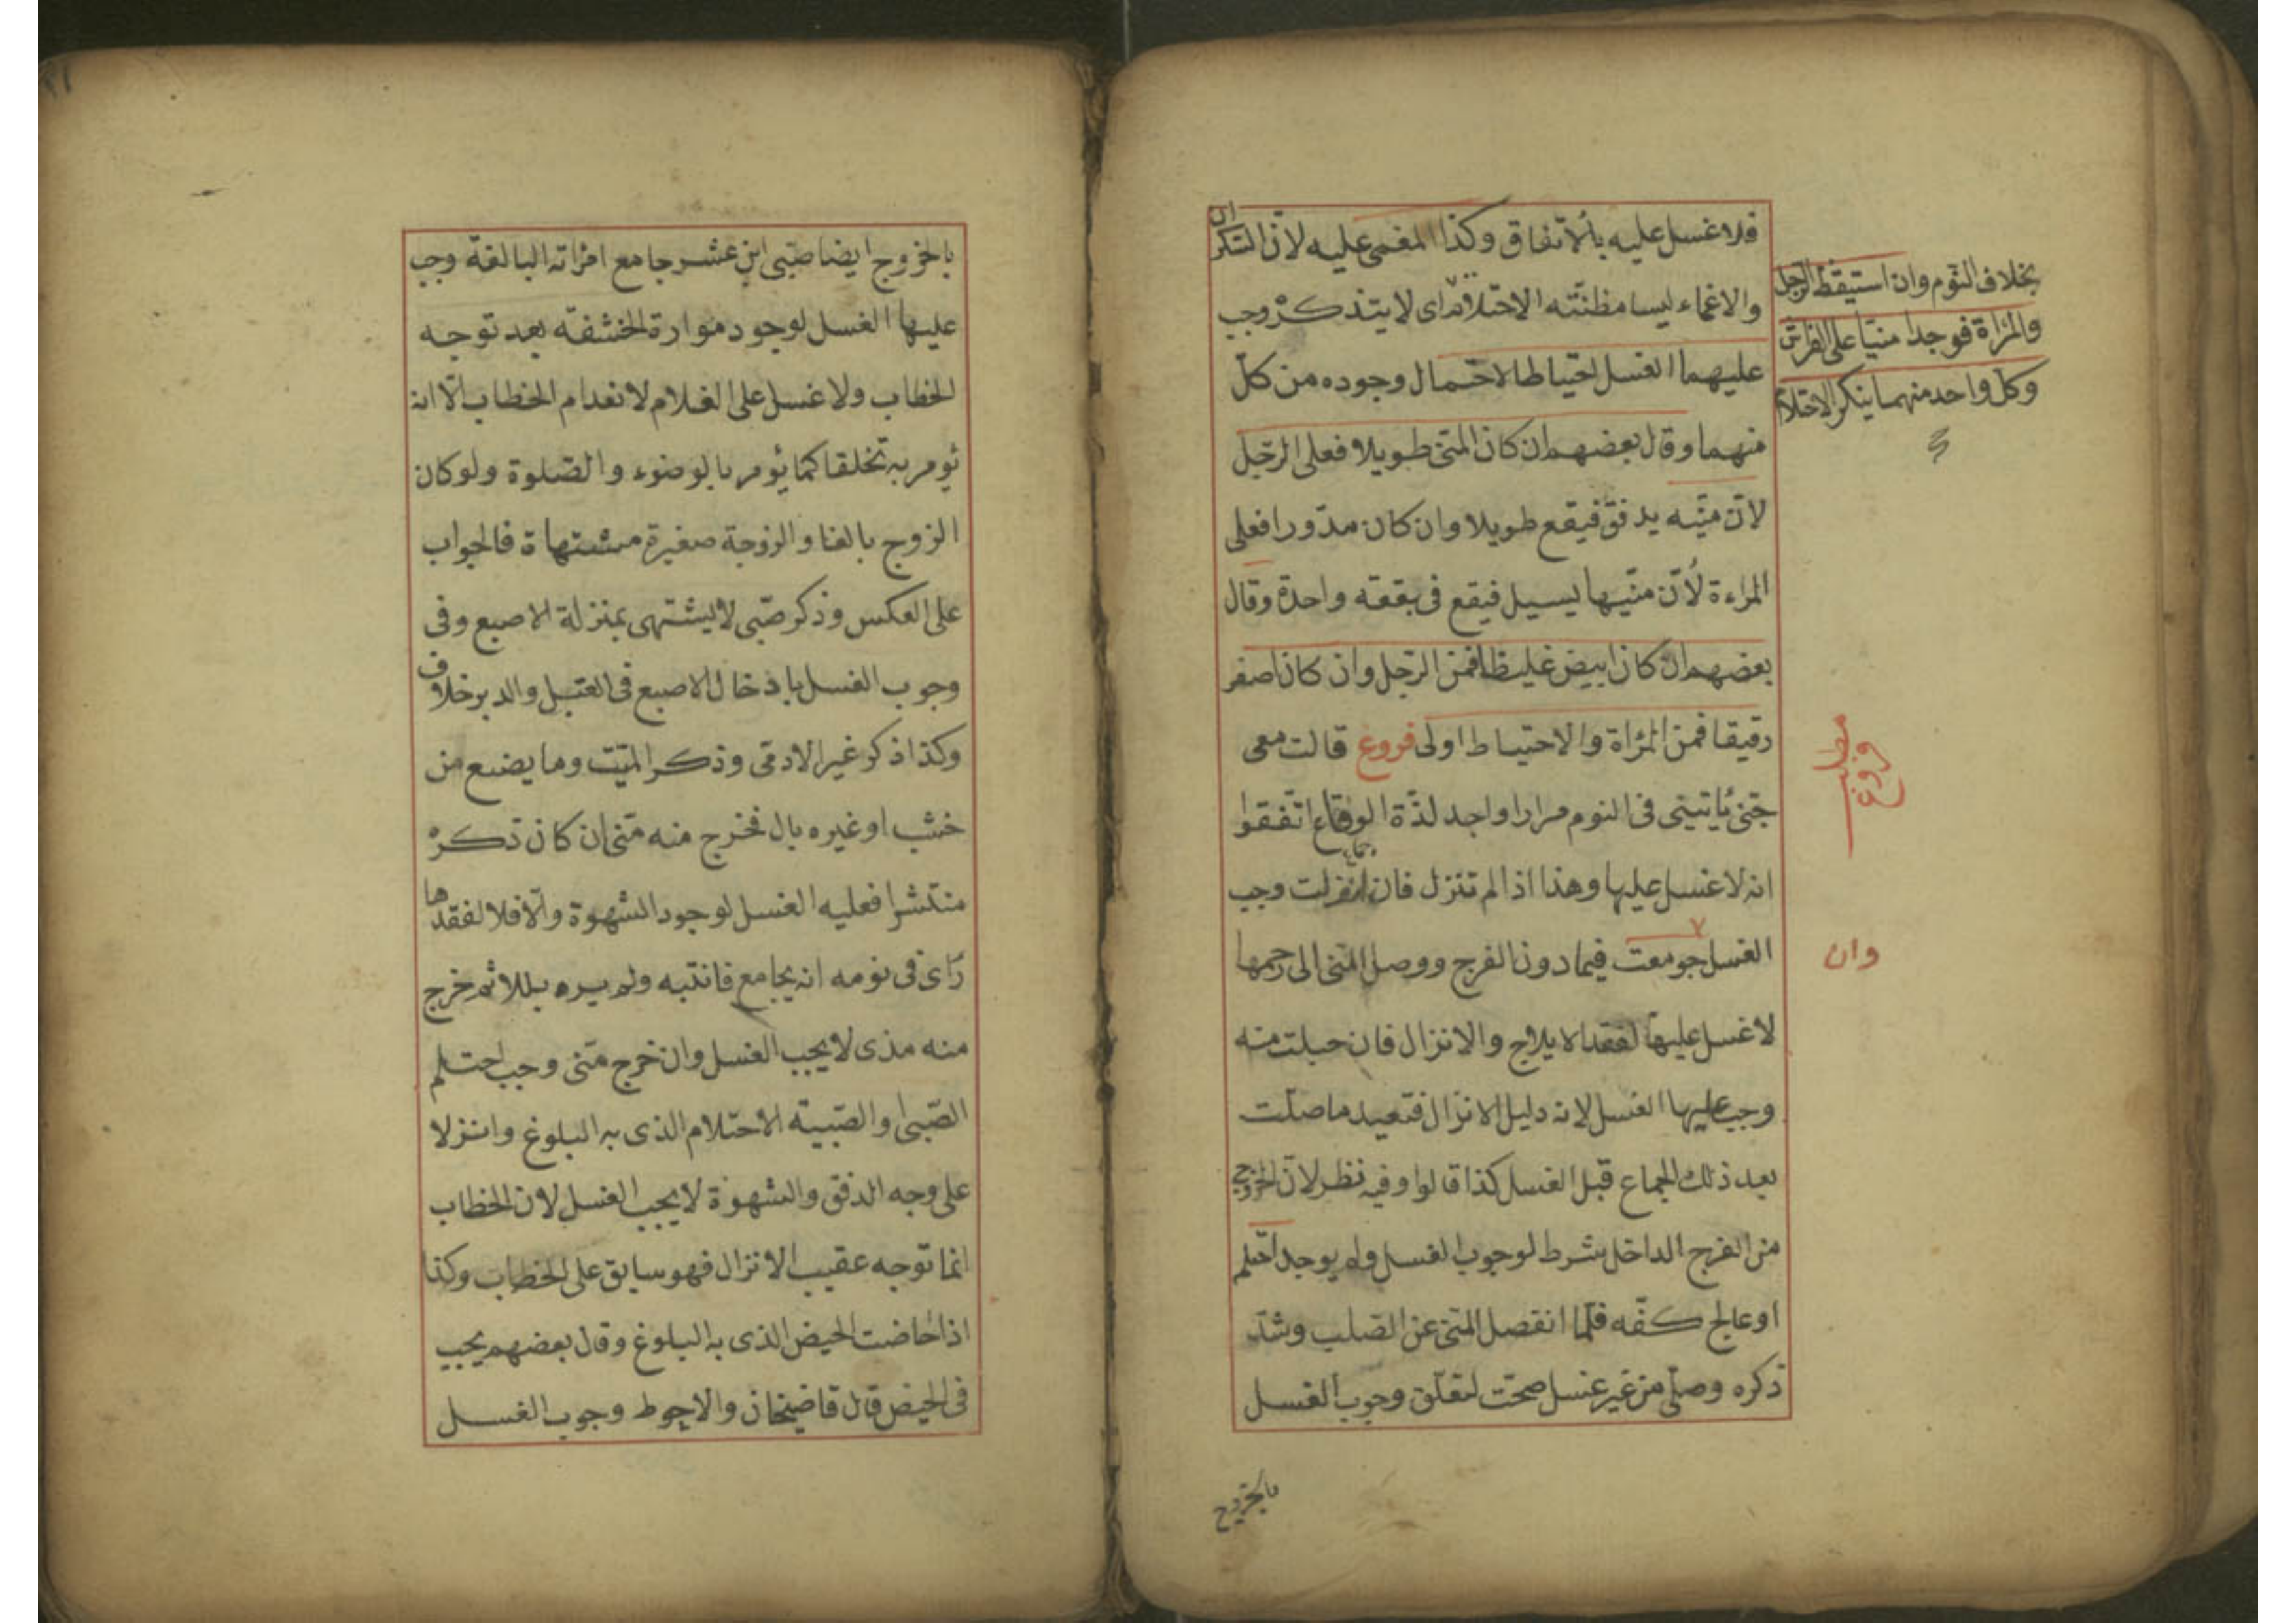 فلا غسل عليه بالاتفاق وكذا المغمى عليه لان السكران
والاغماء ليسا مظنته الاحتلام اى لا يتذكر وجب
عليهما الغسل احتياطا لاحتمال وجوده من كل
منهما وقال بعضهم ان كان المنى طويلا فعلى الرجل
لان منيه يدفق فيقع طويلا وان كان مدورا فعلى
المراءة لان منيها يسيل فيقع فى بقعه واحدة وقال
بعضهم ان كان ابيض غليظا فمن الرجل وان كان اصفر
رقيقا فمن المراة والاحتياط اولى فروع قالت معى
جنى يأتينى فى النوم مرارا واجد لذة الوقاع اتفقوا
جماع
انه لا غسل عليها وهذا اذا لم تنزل فان انزلت وجب
الغسل جومعت فيما دون الفرج ووصل المنى الى رحمها
لا غسل عليها لفقد الايلاج والانزال فان حبلت منه
وجب عليها الغسل لانه دليل الانزال فتعيد ما صلت
بعد ذلك الجماع قبل الغسل كذا قالوا وفيه نظر لان الخروج
من الفرج الداخل شرط لوجوب الغسل ولم يوجد احتلم
او عالج كفه فلما انفصل المنى عن الصلب وشد
ذكره وصلى من غير غسل صحت لتعلق وجوب الغسل
بالخروج
بخلاف النوم وان استيقظ الرجل
والمراة فوجدا منيا على الفراش
وكل واحد منهما ينكر الاحتلام
مطلب
فروع
وان
بالخروج ايضا صبى ابن عشر جامع امراته البالغة وجب
عليها الغسل لوجود موارة الخشفه بعد توجه
الخطاب ولا غسل على الغلام لانعدام الخطاب الا انه
يؤمر به تخلقا كما يؤمر بالوضوء والصلوة ولو كان
الزوج بالغا والزوجة صغيرة مشتهاة فالجواب
على العكس وذكر صبى لا يشتهى بمنزلة الاصبع وفى
وجوب الغسل باذخال الاصبع فى القبل والدبر خلاف
وكذا ذكر غير الادمى وذكر الميت وما يصنع من
خشب او غيره بال فخرج منه منى ان كان ذكره
منتشرا فعليه الغسل لوجود الشهوة والا فلا لفقدها
رأى فى نومه انه يجامع فانتبه ولم يره بللا ثم خرج
منه مذى لا يجب الغسل وان خرج منى وجب احتلم
الصبى او الصبية الاحتلام الذى به البلوغ وانزلا
على وجه الدفق والشهوة لا يجب الغسل لان الخطاب
انما توجه عقيب الانزال فهو سابق على الخطاب وكذا
اذا حاضت الحيض الذى به البلوغ وقال بعضهم يجب
فى الحيض قال قاضيخان والاحوط وجوب الغسل